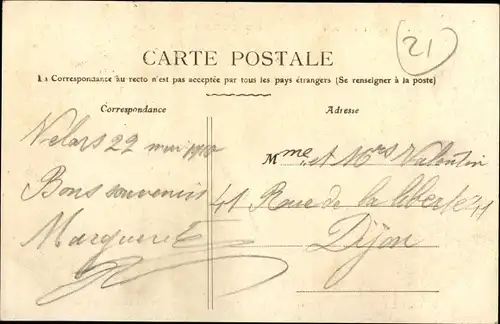 21
CARTE POSTALE
La Correspondance au recto n'est pas acceptée par tous les pays étrangers (Se renseigner à la poste)
Correspondance
Adresse
Velars 22 mai 1910
Bons souvenirs
Marguerite
Mme et Mrs Valentin
41 Rue de la liberté 41
Dijon